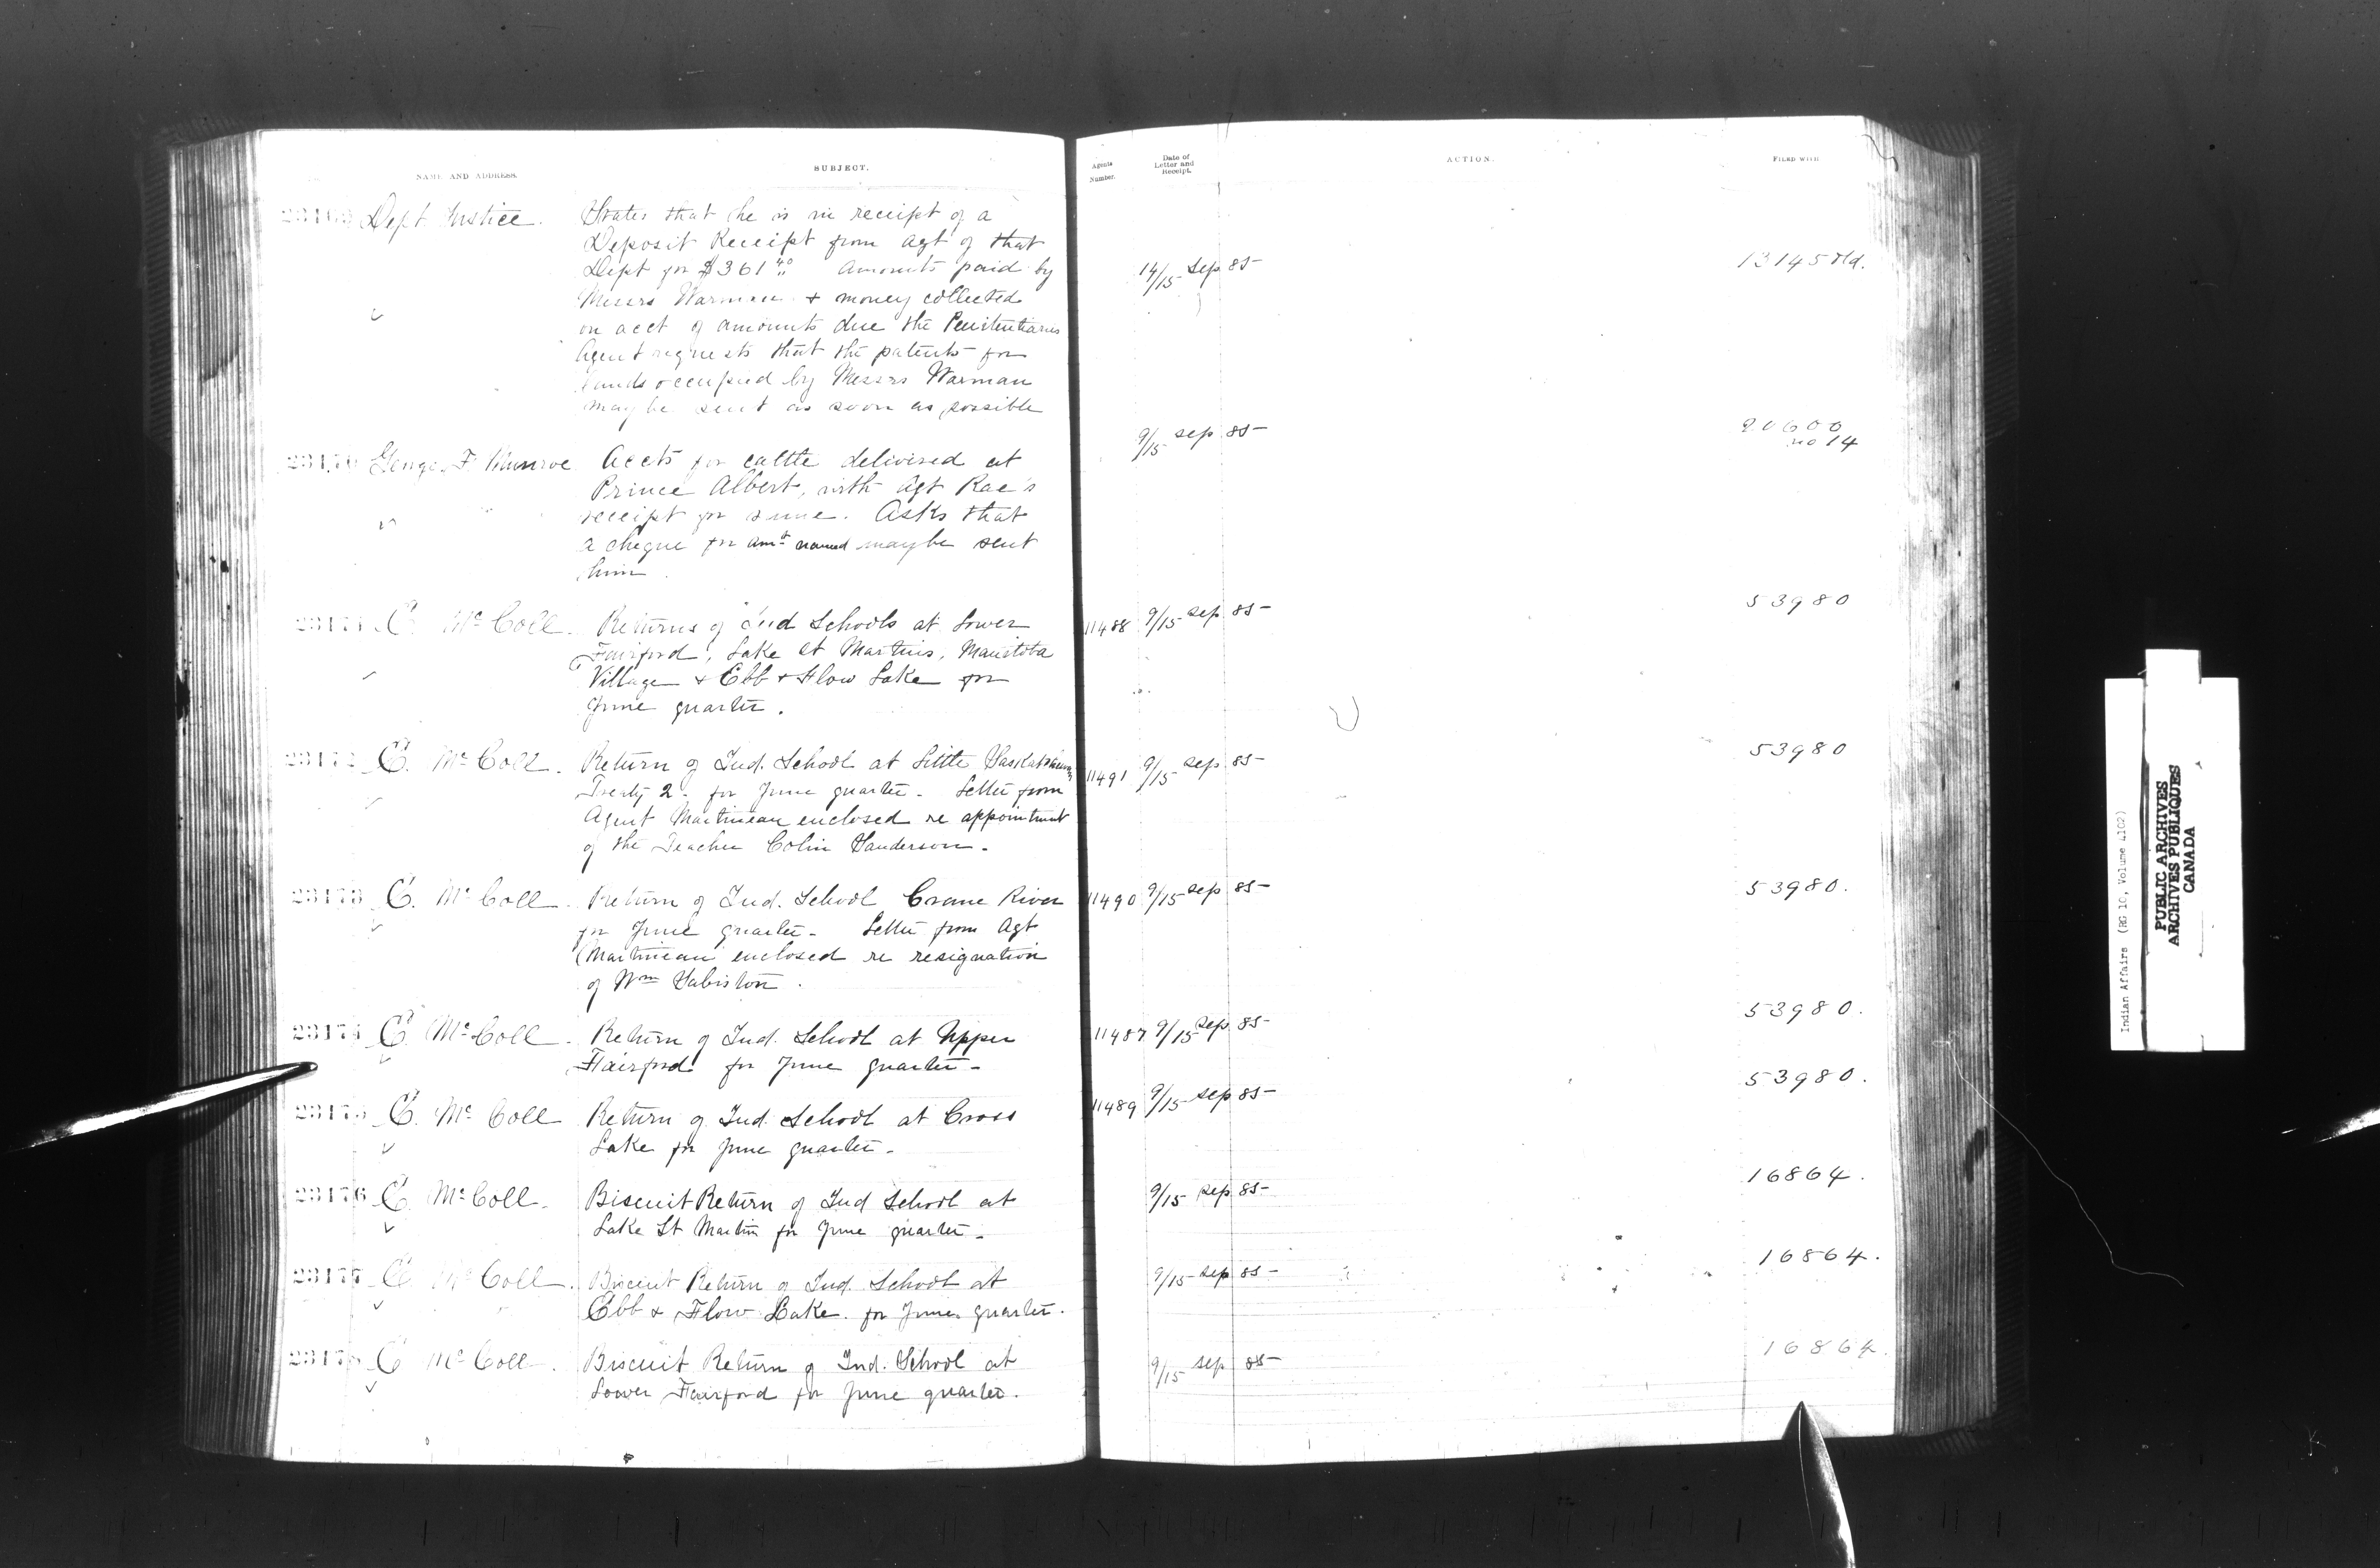 NAME AND ADDRESS.
SUBJECT.
Agents Number.
Date of Letter and Receipt.
ACTION.
FILED WITH
23169 Dept Justice.
States that he is in receipt of a
Deposit Receipt from Agt of that
Dept for $361 40 Amounts paid by
Messrs Warman + money collected
on acct of amounts due the Penitentiaries
Agent requests that the patents for
lands occupied by Messrs Warman
may be sent as soon as possible
14/15 Sep 85
13145 old.
23170 George F. Munroe
Accts for cattle delivered at
Prince Albert, with Agt Rae's
receipt for same. Asks that
a cheque for amt named maybe sent
him
9/15 sep 85
20600
no 14
23171 E. McColl.
Returns of Ind Schools at Lower
Fairford, Lake St Martins, Manitoba
Village + Ebb + Flow Lake for
June quarter.
11488 9/15 sep 85
53980
23172 E. McColl.
Return of Ind. School at Little Saskatchewan
Treaty 2. for June quarter. Letter from
Agent Martineau enclosed re appointment
of the Teacher Colin Sanderson.
11491 9/15 sep 85
53980
23173 E. McColl.
Return of Ind. School Crane River
for June quarter. Letter from Agt
Martineau enclosed re resignation
of Wm Sabiston.
11490 9/15 sep 85
53980.
23174 E. McColl.
Return of Ind. School at Upper
Fairford for June quarter.
11487 9/15 sep 85
53980.
23175 E. McColl
Return of Ind. School at Cross
Lake for June quarter.
11489 9/15 sep 85
53980.
23176 E. McColl.
Biscuit Return of Ind School at
Lake St Martin for June quarter.
9/15 sep 85
16864.
23177 E. McColl.
Biscuit Return of Ind. School at
Ebb + Flow Lake. for June quarter.
9/15 sep 85
16864.
23178 E McColl.
Biscuit Return of Ind. School at
Lower Fairford for June quarter.
9/15 sep 85
16864.
Indian Affairs (RG 10, Volume 4102)
PUBLIC ARCHIVES
ARCHIVES PUBLIQUES
CANADA